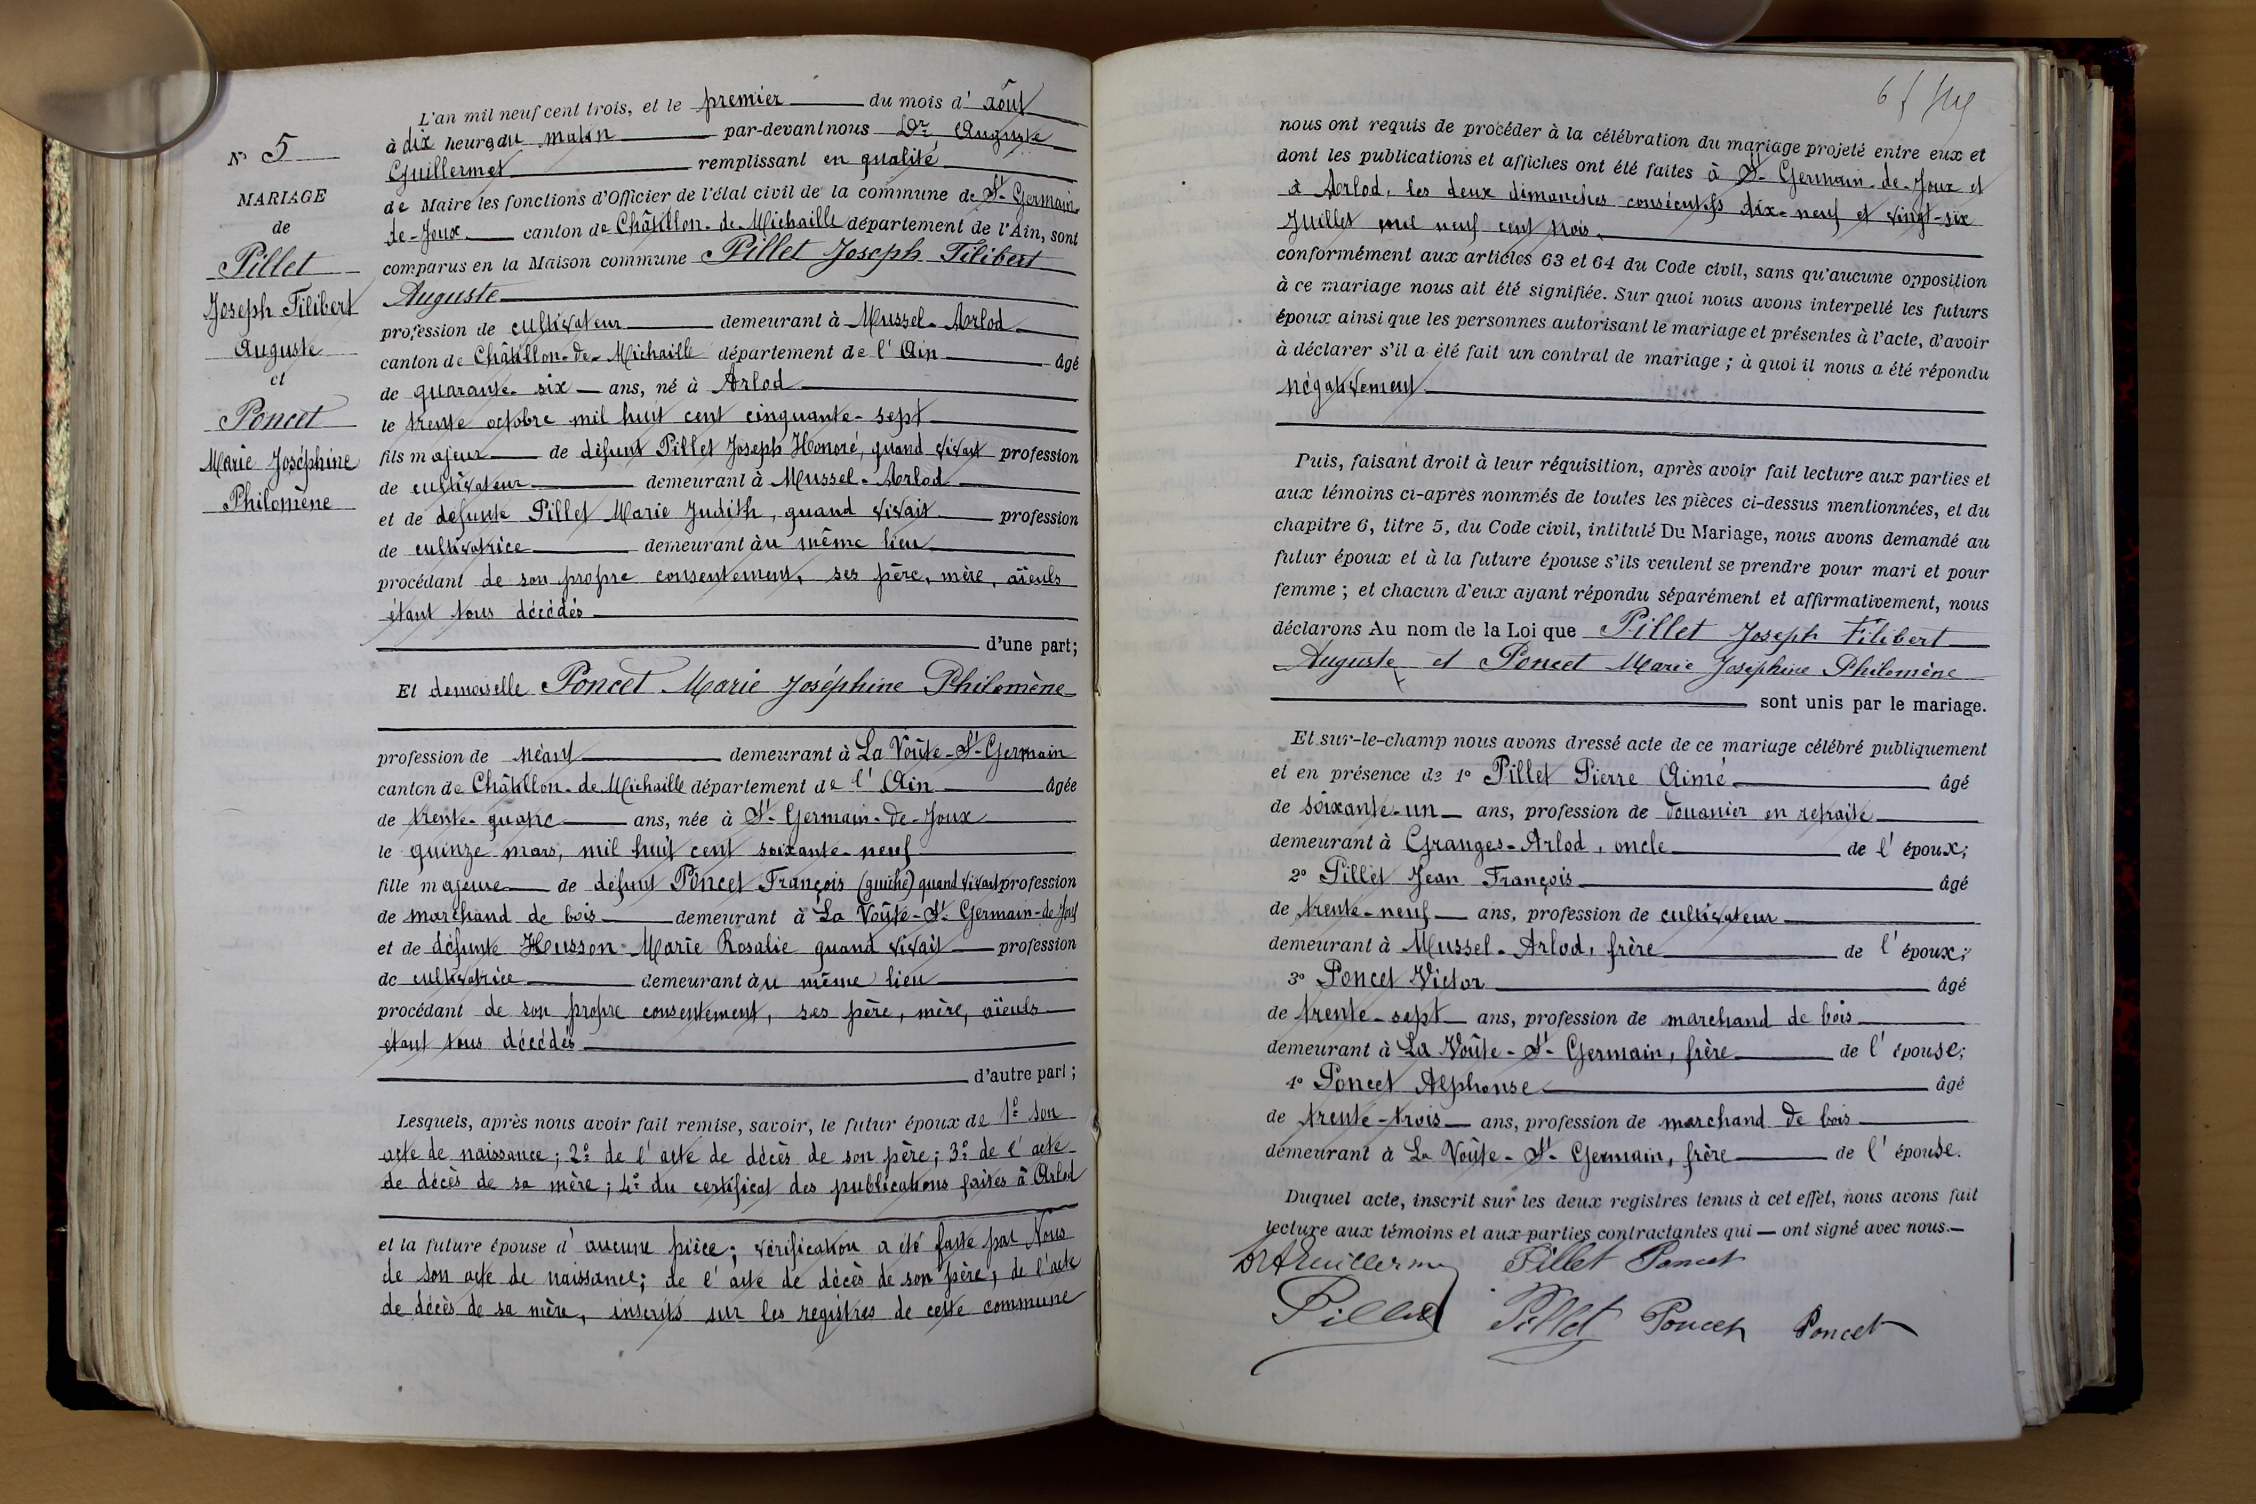 N° 5
MARIAGE
de
Pillet
Joseph Filibert
Auguste
et
Poncet
Marie Joséphine
Philomène
L'an mil neuf cent trois, et le premier du mois d'août
à dix heures du matin par-devant nous Dr Auguste
Guillermet remplissant en qualité
de Maire les fonctions d'Officier de l'état civil de la commune de St Germain-
de-Joux canton de Châtillon-de-Michaille département de l'Ain, sont
comparus en la Maison commune Pillet Joseph Filibert
Auguste
profession de cultivateur demeurant à Mussel-Arlod
canton de Châtillon-de-Michaille département de l'Ain âgé
de quarante-six ans, né à Arlod
le trente octobre mil huit cent cinquante-sept
fils majeur de défunt Pillet Joseph Honoré, quand vivait profession
de cultivateur demeurant à Mussel-Arlod
et de défunte Pillet Marie Judith, quand vivait profession
de cultivatrice demeurant au même lieu
procédant de son propre consentement, ses père, mère, aïeuls
étant tous décédés
d'une part;
Et demoiselle Poncet Marie Joséphine Philomène
profession de néant demeurant à La Voûte-St-Germain
canton de Châtillon-de-Michaille département de l'Ain âgée
de trente-quatre ans, née à St-Germain-de-Joux
le quinze mars, mil huit cent soixante-neuf
fille majeure de défunt Poncet François (guiche) quand vivait profession
de marchand de bois demeurant à La Voûte-St-Germain-de-Joux
et de défunte Husson Marie Rosalie quand vivait profession
de cultivatrice demeurant au même lieu
procédant de son propre consentement, ses père, mère, aïeuls
étant tous décédés
d'autre part;
Lesquels, après nous avoir fait remise, savoir, le futur époux de 1° son
acte de naissance; 2° de l'acte de décès de son père; 3° de l'acte
de décès de sa mère; 4° du certificat des publications faites à Arlod
et la future épouse d'aucune pièce; vérification a été faite par Nous
de son acte de naissance; de l'acte de décès de son père; de l'acte
de décès de sa mère, inscrits sur les registres de cette commune
6
nous ont requis de procéder à la célébration du mariage projeté entre eux et
dont les publications et affiches ont été faites à St-Germain-de-Joux et
à Arlod, les deux dimanches consécutifs dix-neuf et vingt-six
Juillet mil neuf cent trois,
conformément aux articles 63 et 64 du Code civil, sans qu'aucune opposition
à ce mariage nous ait été signifiée. Sur quoi nous avons interpellé les futurs
époux ainsi que les personnes autorisant le mariage et présentes à l'acte, d'avoir
à déclarer s'il a été fait un contrat de mariage; à quoi il nous a été répondu
négativement
Puis, faisant droit à leur réquisition, après avoir fait lecture aux parties et
aux témoins ci-après nommés de toutes les pièces ci-dessus mentionnées, et du
chapitre 6, titre 5, du Code civil, intitulé Du Mariage, nous avons demandé au
futur époux et à la future épouse s'ils veulent se prendre pour mari et pour
femme; et chacun d'eux ayant répondu séparément et affirmativement, nous
déclarons Au nom de la Loi que Pillet Joseph Filibert
Auguste et Poncet Marie Joséphine Philomène
sont unis par le mariage.
Et sur-le-champ nous avons dressé acte de ce mariage célébré publiquement
et en présence de 1° Pillet Pierre Aimé âgé
de soixante-un ans, profession de douanier en retraite
demeurant à Granges-Arlod, oncle de l'époux;
2° Pillet Jean François âgé
de trente-neuf ans, profession de cultivateur
demeurant à Mussel-Arlod, frère de l'époux;
3° Poncet Victor âgé
de trente-sept ans, profession de marchand de bois
demeurant à La Voûte-St-Germain, frère de l'épouse;
4° Poncet Alphonse âgé
de trente-trois ans, profession de marchand de bois
demeurant à La Voûte-St-Germain, frère de l'épouse.
Duquel acte, inscrit sur les deux registres tenus à cet effet, nous avons fait
lecture aux témoins et aux parties contractantes qui ont signé avec nous.
Dr A Guillermet Pillet Poncet
Pillet Pillet Poncet Poncet